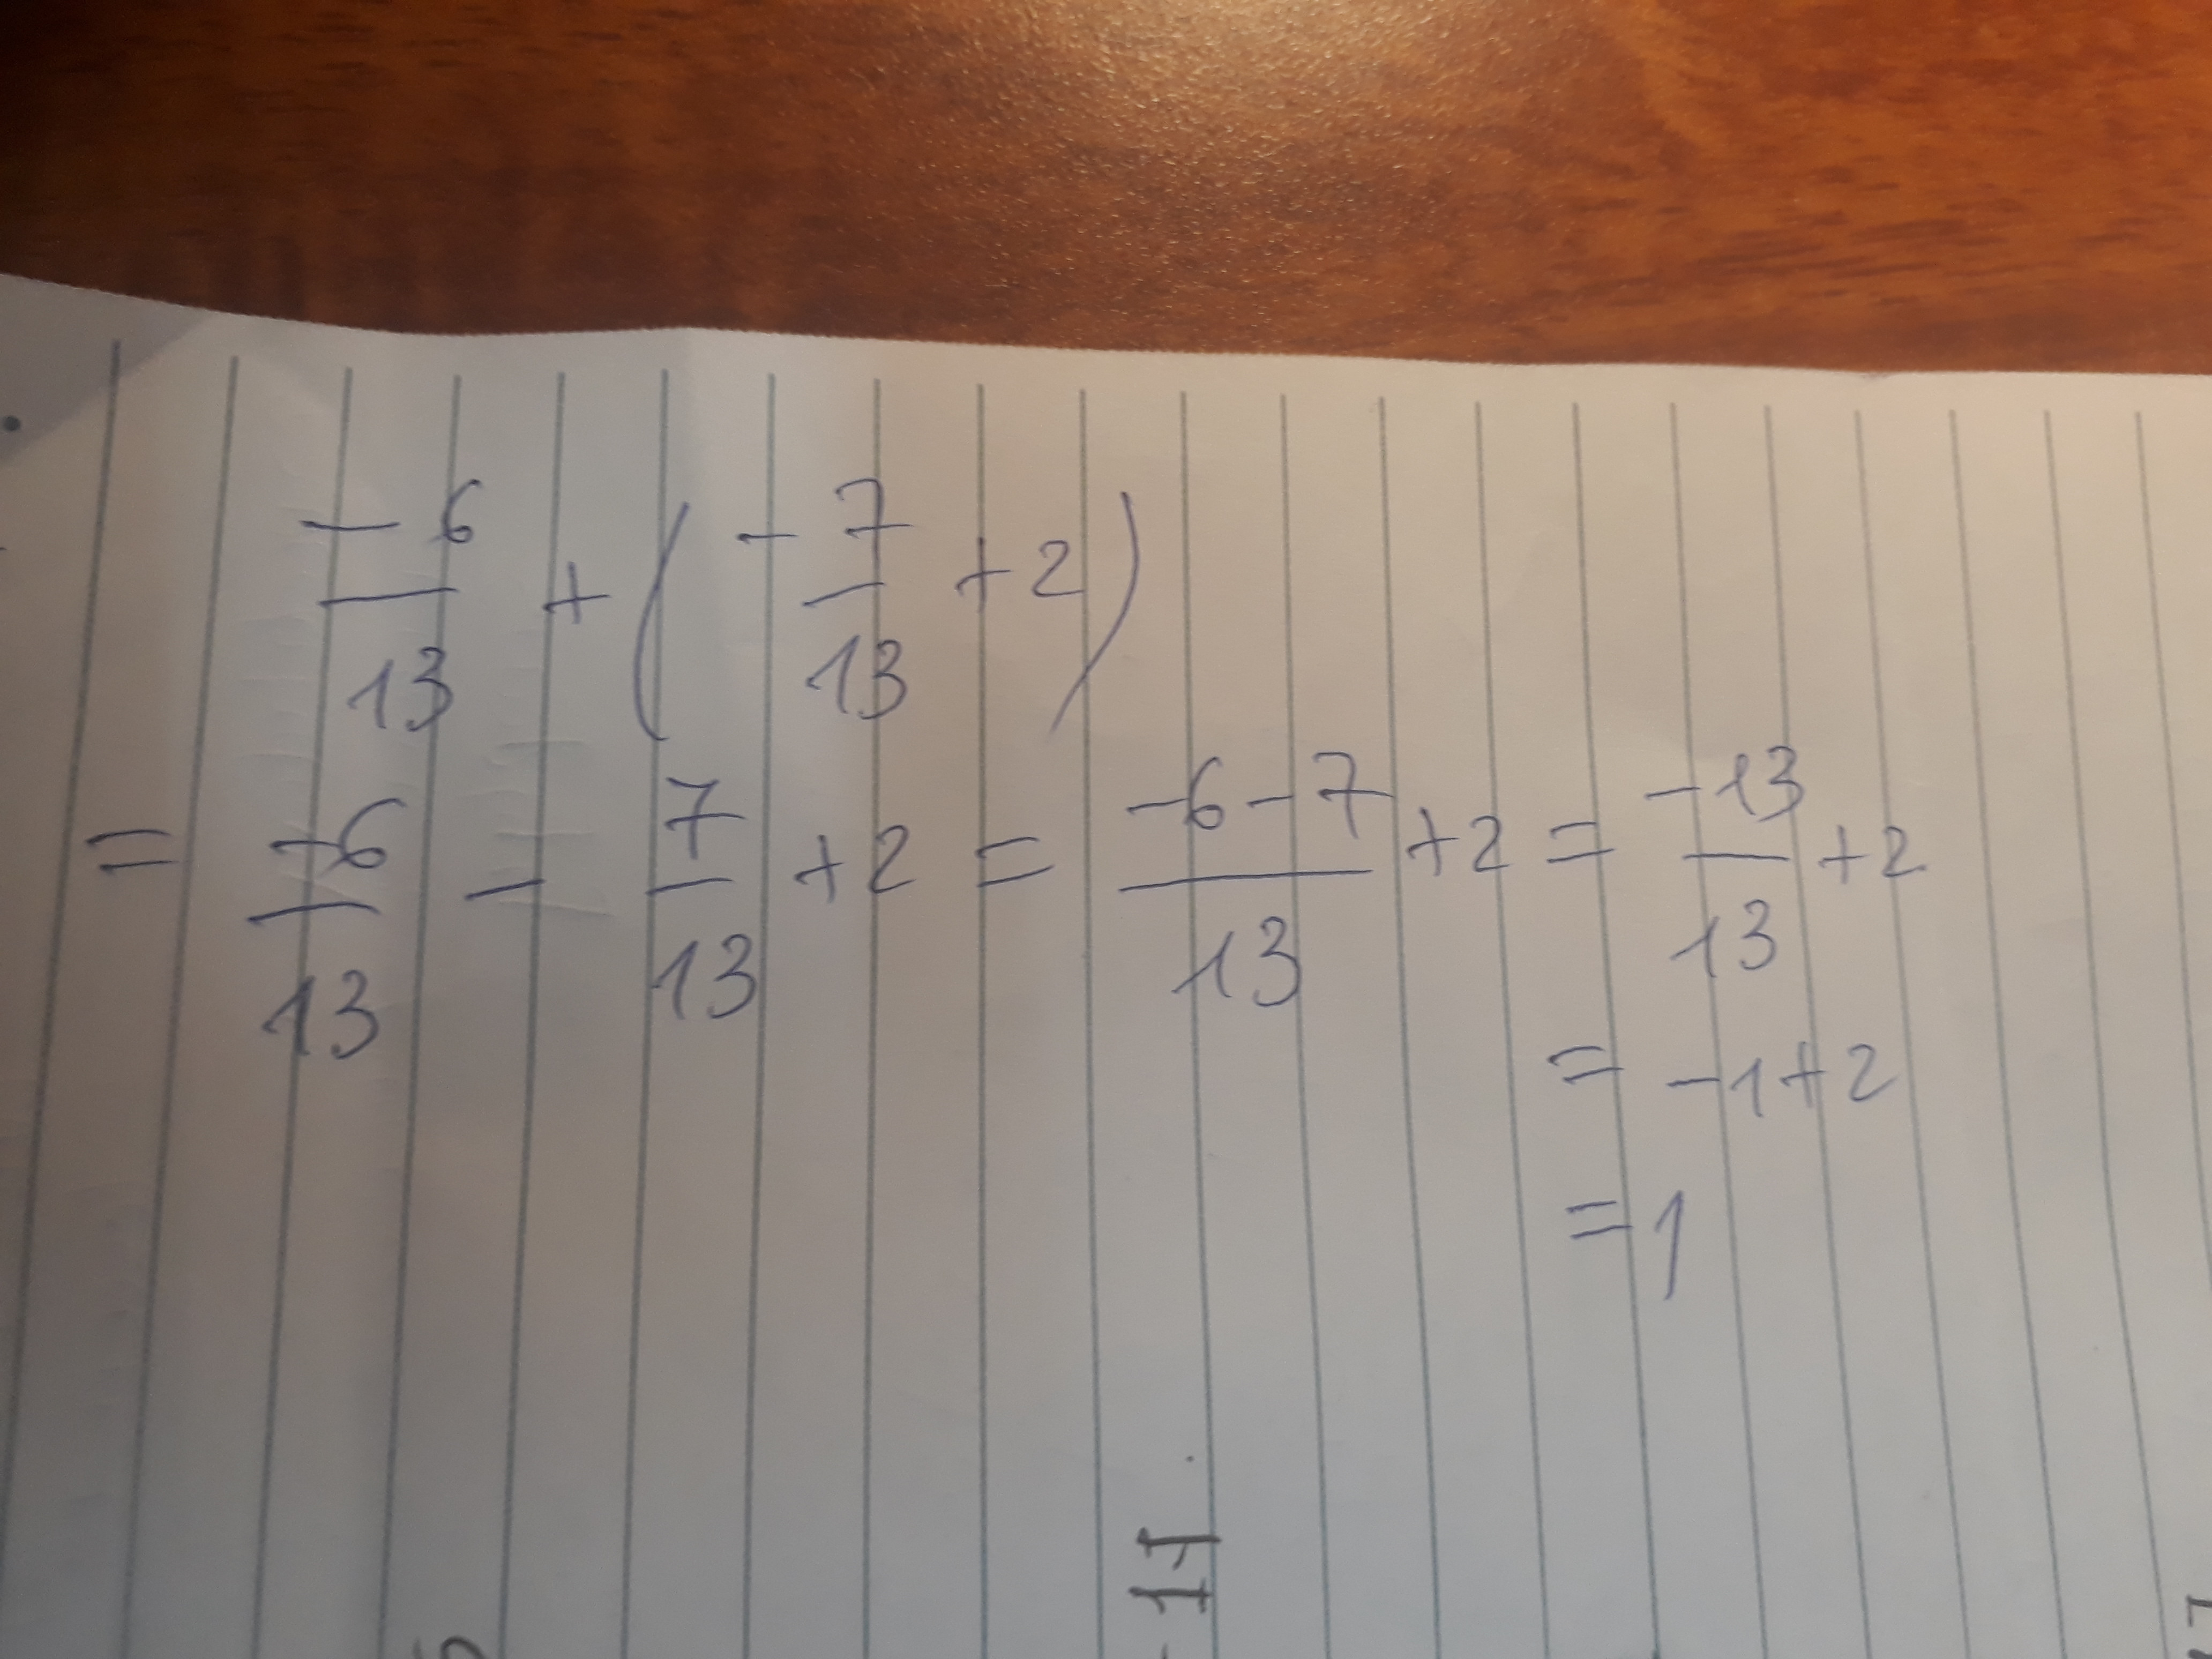 -6/13 + (-7/13 + 2)
= -6/13 - 7/13 + 2 = -6-7/13 + 2 = -13/13 + 2
= -1 + 2
= 1